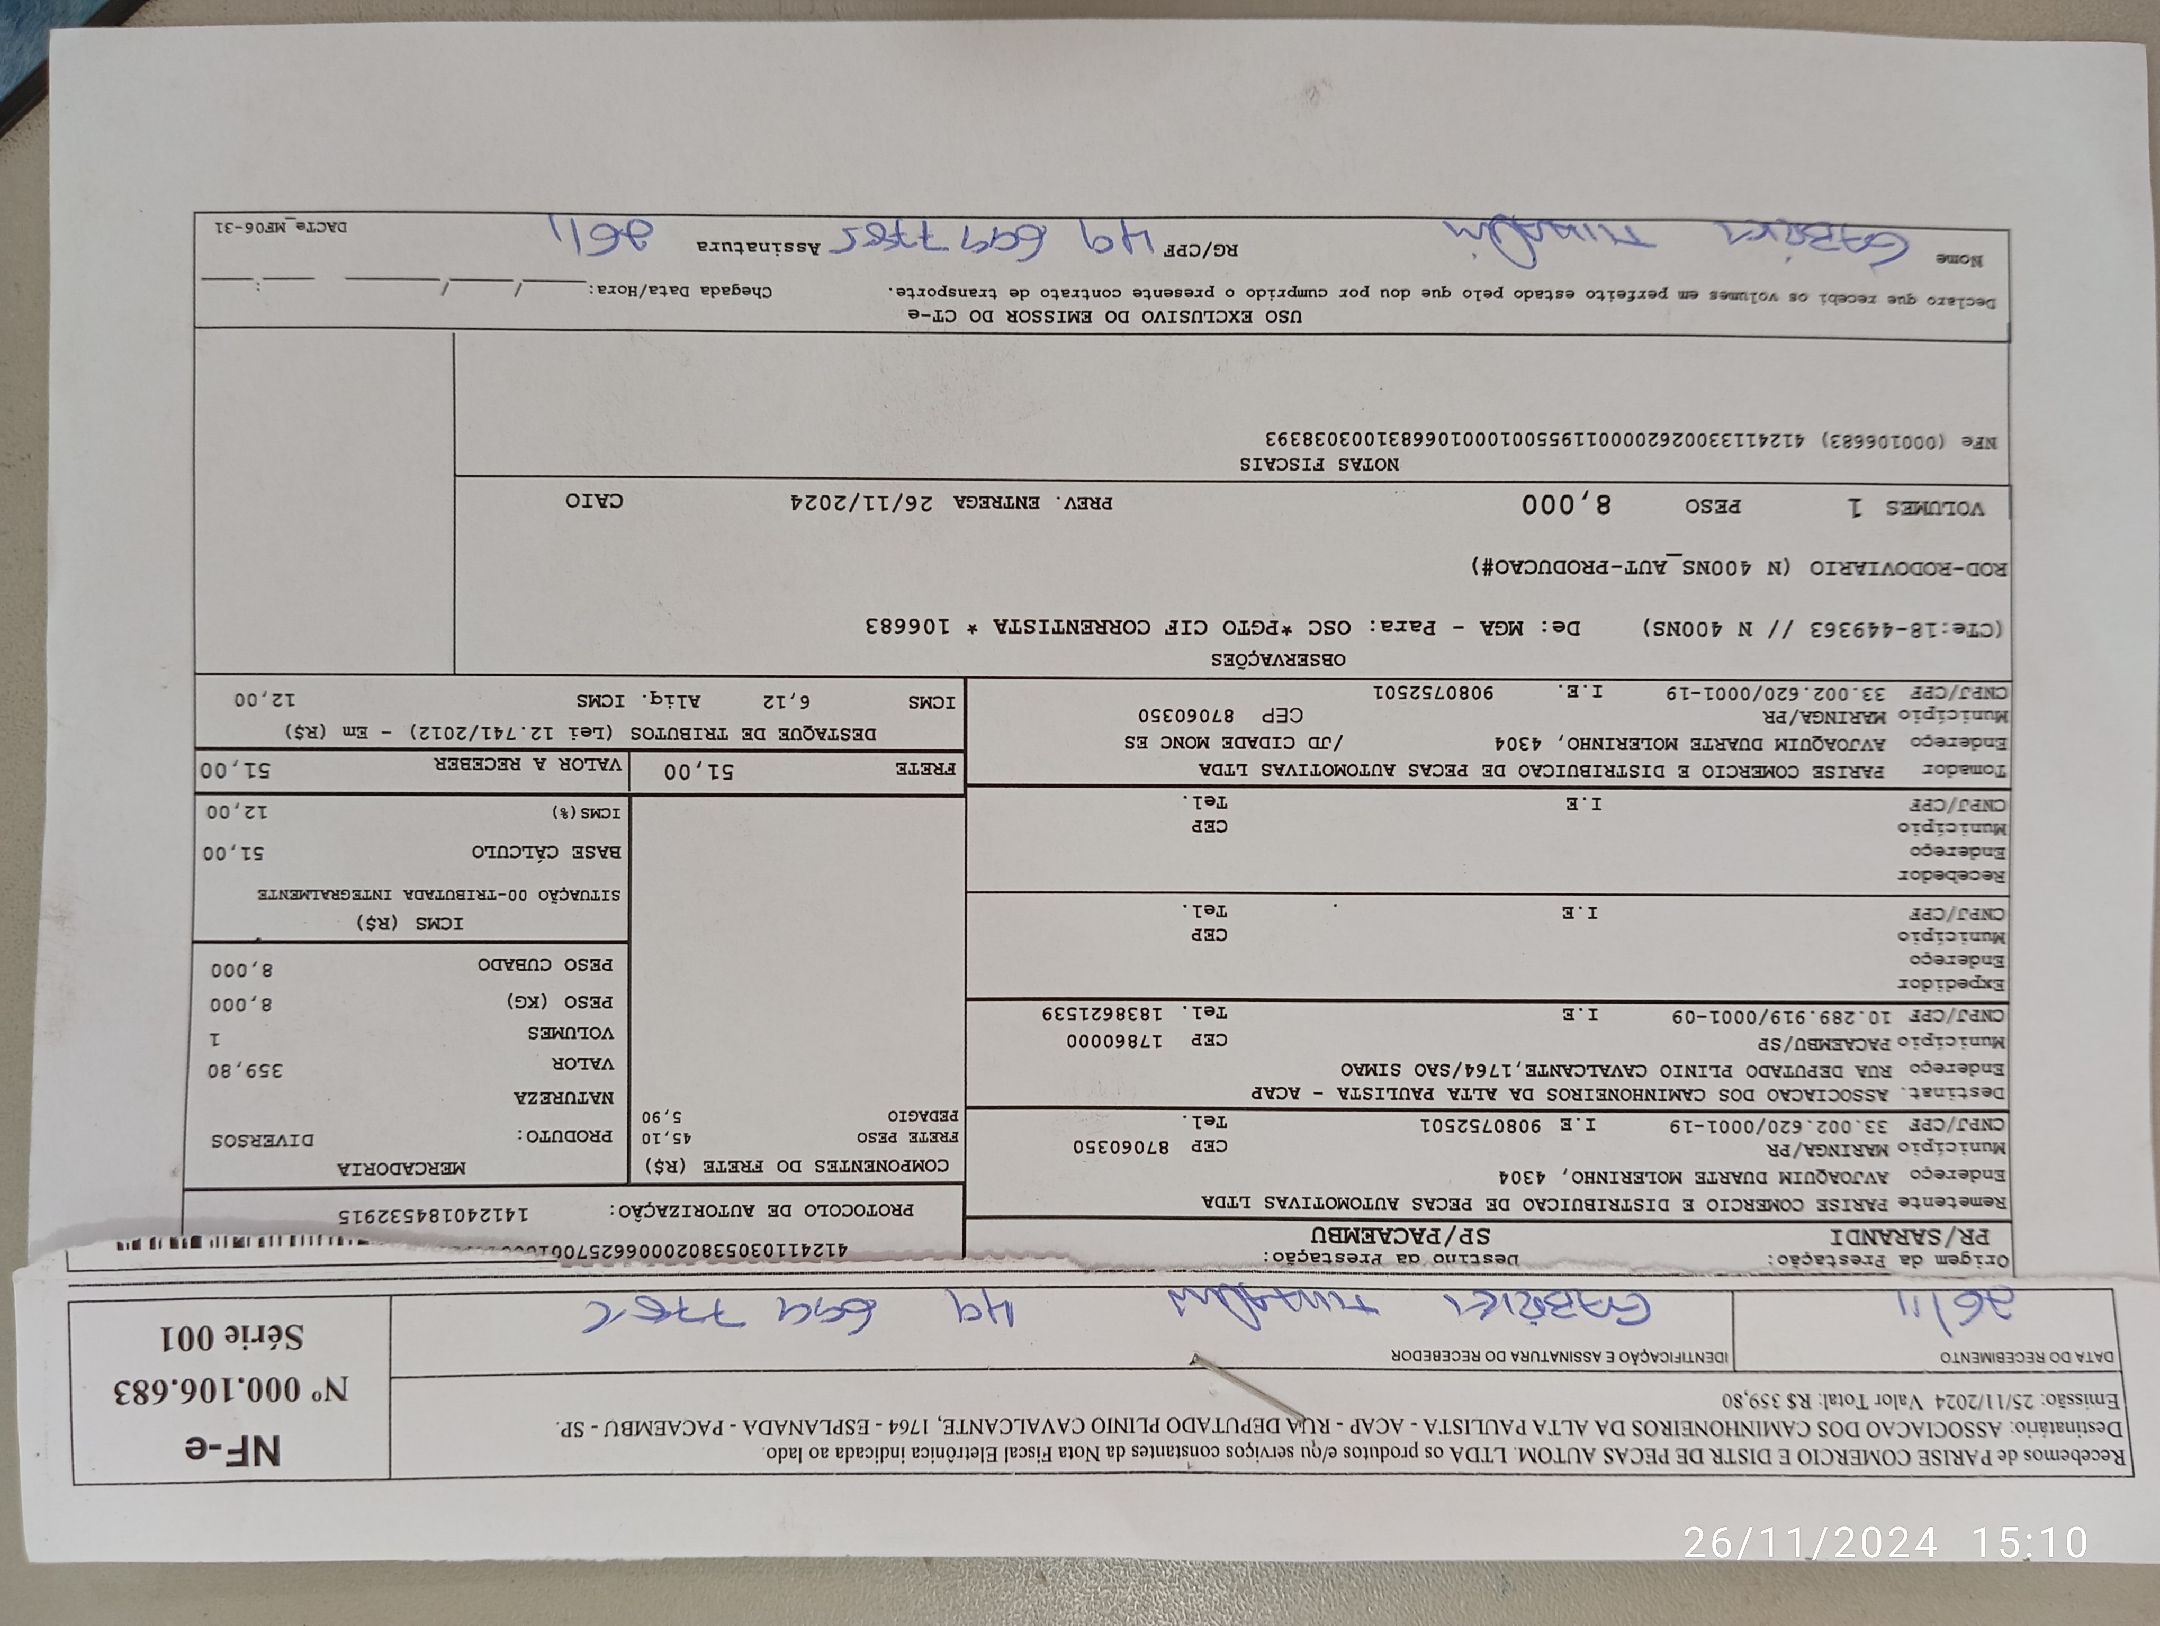 Recebemos de PARISE COMERCIO E DISTR DE PECAS AUTOM. LTDA os produtos e/ou serviços constantes da Nota Fiscal Eletrônica indicada ao lado.
Destinatário: ASSOCIACAO DOS CAMINHONEIROS DA ALTA PAULISTA - ACAP - RUA DEPUTADO PLINIO CAVALCANTE, 1764 - ESPLANADA - PACAEMBU - SP.
Emissão: 25/11/2024 Valor Total: R$ 359,80
NF-e
Nº 000.106.683
Série 001
DATA DO RECEBIMENTO
IDENTIFICAÇÃO E ASSINATURA DO RECEBEDOR
26/11
GABRIEL 49 699 778
Origem da Prestação:
Destino da Prestação:
PR/SARANDI
SP/PACAEMBU
PROTOCOLO DE AUTORIZAÇÃO: 141240184532915
Remetente PARISE COMERCIO E DISTRIBUICAO DE PECAS AUTOMOTIVAS LTDA
Endereço AVJOAQUIM DUARTE MOLERINHO, 4304
Município MARINGA/PR CEP 87060350
CNPJ/CPF 33.002.620/0001-19 I.E 9080752501 Tel.
Destinat. ASSOCIACAO DOS CAMINHONEIROS DA ALTA PAULISTA - ACAP
Endereço RUA DEPUTADO PLINIO CAVALCANTE,1764/SAO SIMAO
Município PACAEMBU/SP CEP 17860000
CNPJ/CPF 10.289.919/0001-09 I.E Tel. 1838621539
Expedidor
Endereço
Município CEP
CNPJ/CPF I.E Tel.
Recebedor
Endereço
Município CEP
CNPJ/CPF I.E Tel.
Tomador PARISE COMERCIO E DISTRIBUICAO DE PECAS AUTOMOTIVAS LTDA
Endereço AVJOAQUIM DUARTE MOLERINHO, 4304 /JD CIDADE MONC ES
Município MARINGA/PR CEP 87060350
CNPJ/CPF 33.002.620/0001-19 I.E. 9080752501
COMPONENTES DO FRETE (R$)
FRETE PESO 45,10
PEDAGIO 5,90
MERCADORIA
PRODUTO: DIVERSOS
NATUREZA
VALOR 359,80
VOLUMES 1
PESO (KG) 8,000
PESO CUBADO 8,000
ICMS (R$)
SITUAÇÃO 00-TRIBUTADA INTEGRALMENTE
BASE CÁLCULO 51,00
ICMS(%) 12,00
FRETE 51,00
VALOR A RECEBER 51,00
DESTAQUE DE TRIBUTOS (Lei 12.741/2012) - Em (R$)
ICMS 6,12 Aliq. ICMS 12,00
OBSERVAÇÕES
(CTe:18-449363 // N 400NS) De: MGA - Para: OSC *PGTO CIF CORRENTISTA * 106683
ROD-RODOVIARIO (N 400NS_AUT-PRODUCAO#)
VOLUMES 1 PESO 8,000 PREV. ENTREGA 26/11/2024 CAIO
NOTAS FISCAIS
NFe (000106683) 41241133002620000119550010001066831003038393
USO EXCLUSIVO DO EMISSOR DO CT-e
Declaro que recebi os volumes em perfeito estado pelo que dou por cumprido o presente contrato de transporte. Chegada Data/Hora: ____/____/____ ____:____
Nome GABRIEL RG/CPF 49 699 778 Assinatura 2611
DACTe_MF06-31
26/11/2024 15:10